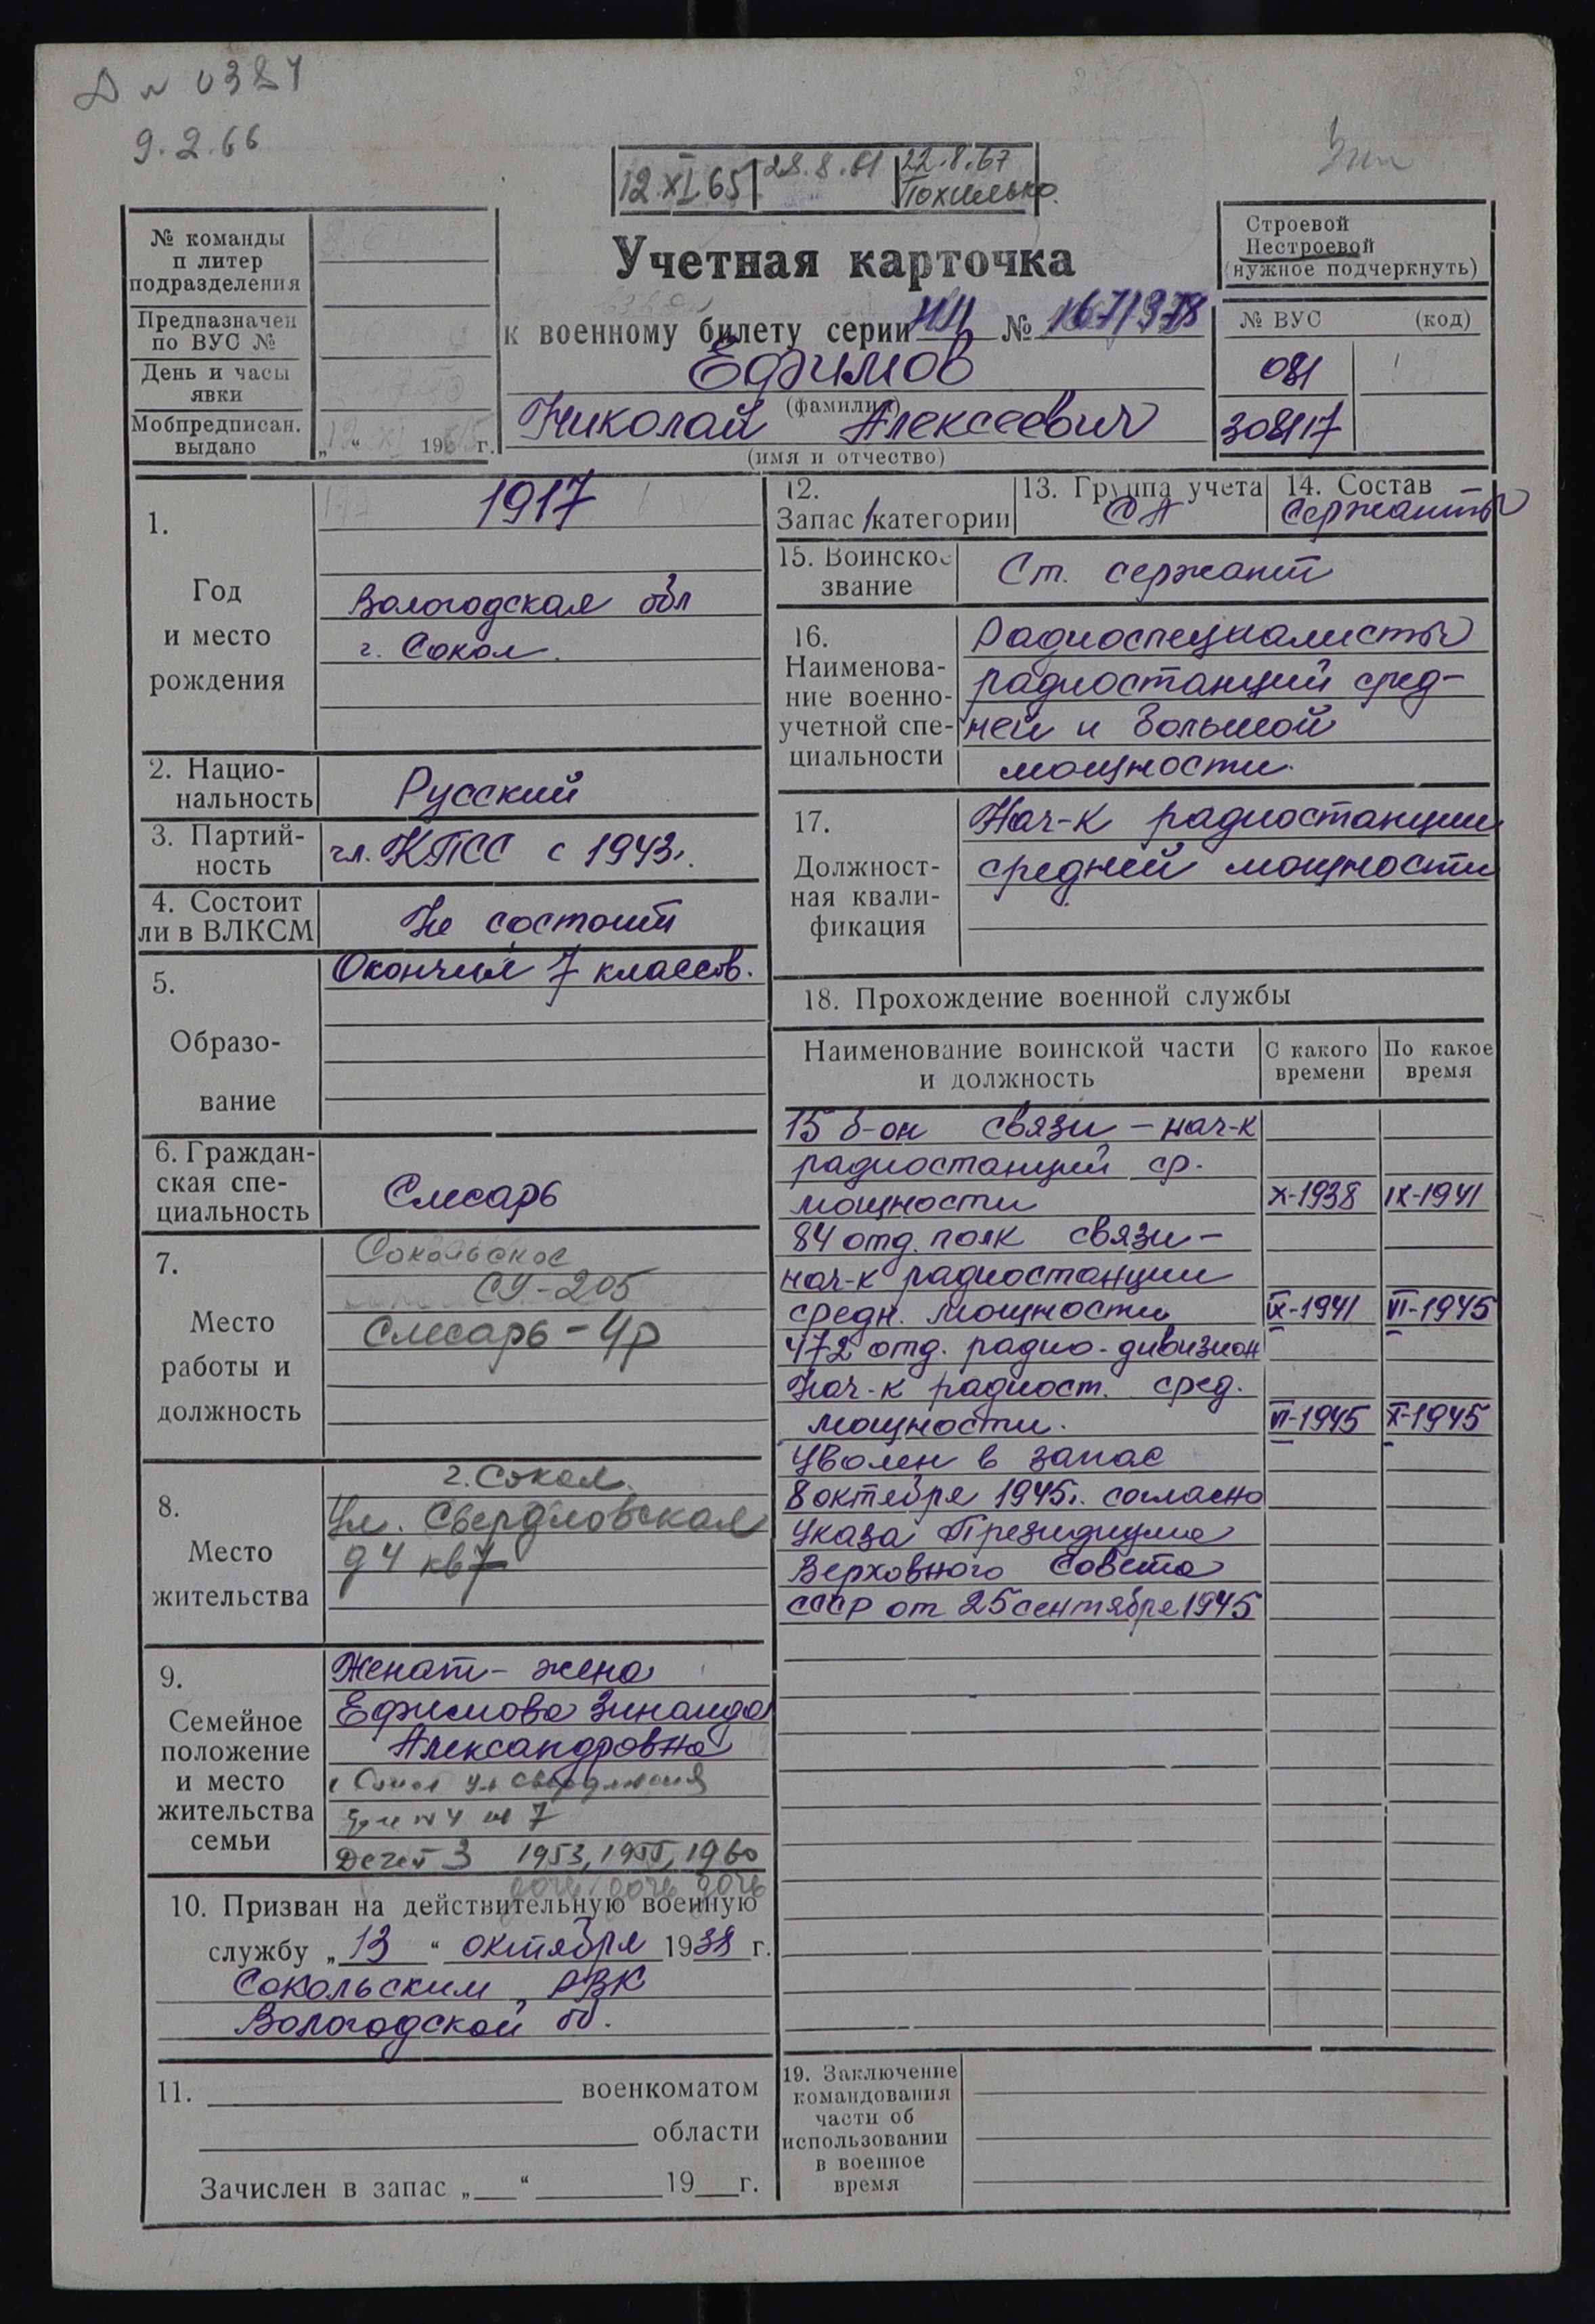 9.2.66
12.XI.65 28.8.61 22.8.67
Похилько.
№ команды
и литер
подразделения
Предназначен
по ВУС №
День и часы
явки
Мобпредписан.
выдано
„ “ 196 г.
Учетная карточка
к военному билету серии НП №
Ефимов
(фамилия)
Николай Алексеевич
(имя и отчество)
Строевой
Нестроевой
(нужное подчеркнуть)
№ ВУС (код)
081
308117
1.
Год
и место
рождения
1917
Вологодская обл
г. Сокол.
2. Нацио-
нальность
Русский
3. Партий-
ность
чл. КПСС с 1943г.
4. Состоит
ли в ВЛКСМ
Не состоит
5.
Образо-
вание
Окончил 7 классов.
6. Граждан-
ская спе-
циальность
Слесарь
7.
Место
работы и
должность
Сокольское
СУ-205
Слесарь-4р
8.
Место
жительства
г. Сокол.
Ул. Свердловская
д 4 кв 7
9.
Семейное
положение
и место
жительства
семьи
Женат - жена
Ефимова Зинаида
Александровна
г Сокол ул Свердловская
дом N 4 кв 7
Детей 3 1953, 1955, 1960
дочь дочь дочь
10. Призван на действительную военную
службу „13“ октября 1938 г.
Сокольским РВК
Вологодской об.
11. военкоматом
области
Зачислен в запас „ “ 19 г.
12.
Запас 1 категории
13. Группа учета
СА
14. Состав
Сержанты
15. Воинское
звание
Ст. сержант
16.
Наименова-
ние военно-
учетной спе-
циальности
Радиоспециалисты
радиостанций сред-
ней и большой
мощности.
17.
Должност-
ная квали-
фикация
Нач-к радиостанции
средней мощности
18. Прохождение военной службы
Наименование воинской части
и должность
С какого
времени
По какое
время
15 б-он связи - нач-к
радиостанций ср.
мощности X-1938 IX-1941
84 отд. полк связи -
нач-к радиостанции
средн. мощности IX-1941 VI-1945
472 отд. радио-дивизион
Нач-к радиост. сред.
мощности. VI-1945 X-1945
Уволен в запас
8 октября 1945г. согласно
Указа Президиума
Верховного Совета
СССР от 25 сентября 1945
19. Заключение
командования
части об
использовании
в военное
время